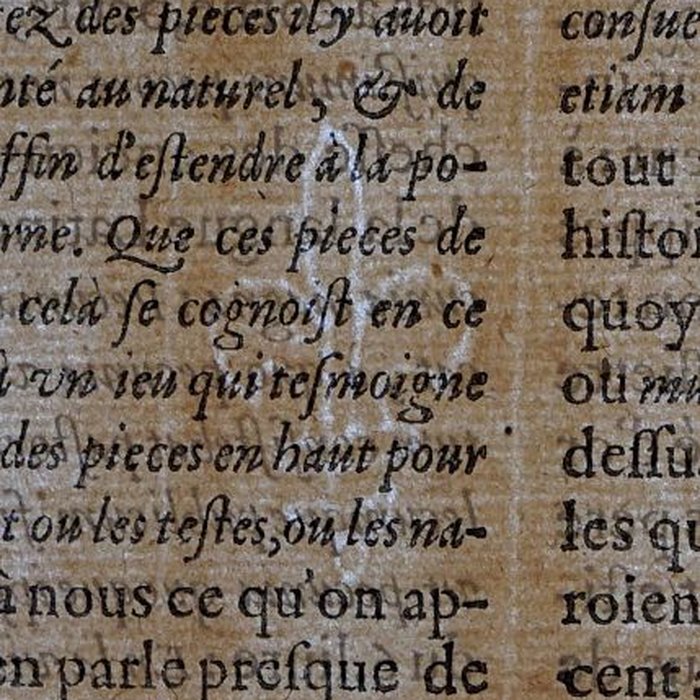 ez des pieces il y auoit
nté au naturel, & de
ffin d'eſtendre à la po-
rne. Que ces pieces de
celà ſe cognoiſt en ce
à vn ieu qui teſmoigne
des pieces en haut pour
t ou les teſtes, ou les na-
à nous ce qu'on ap-
en parle preſque de
conſue
etiam
tout
hiſtor
quoy
ou mu
deſſu
les qu
roien
cent